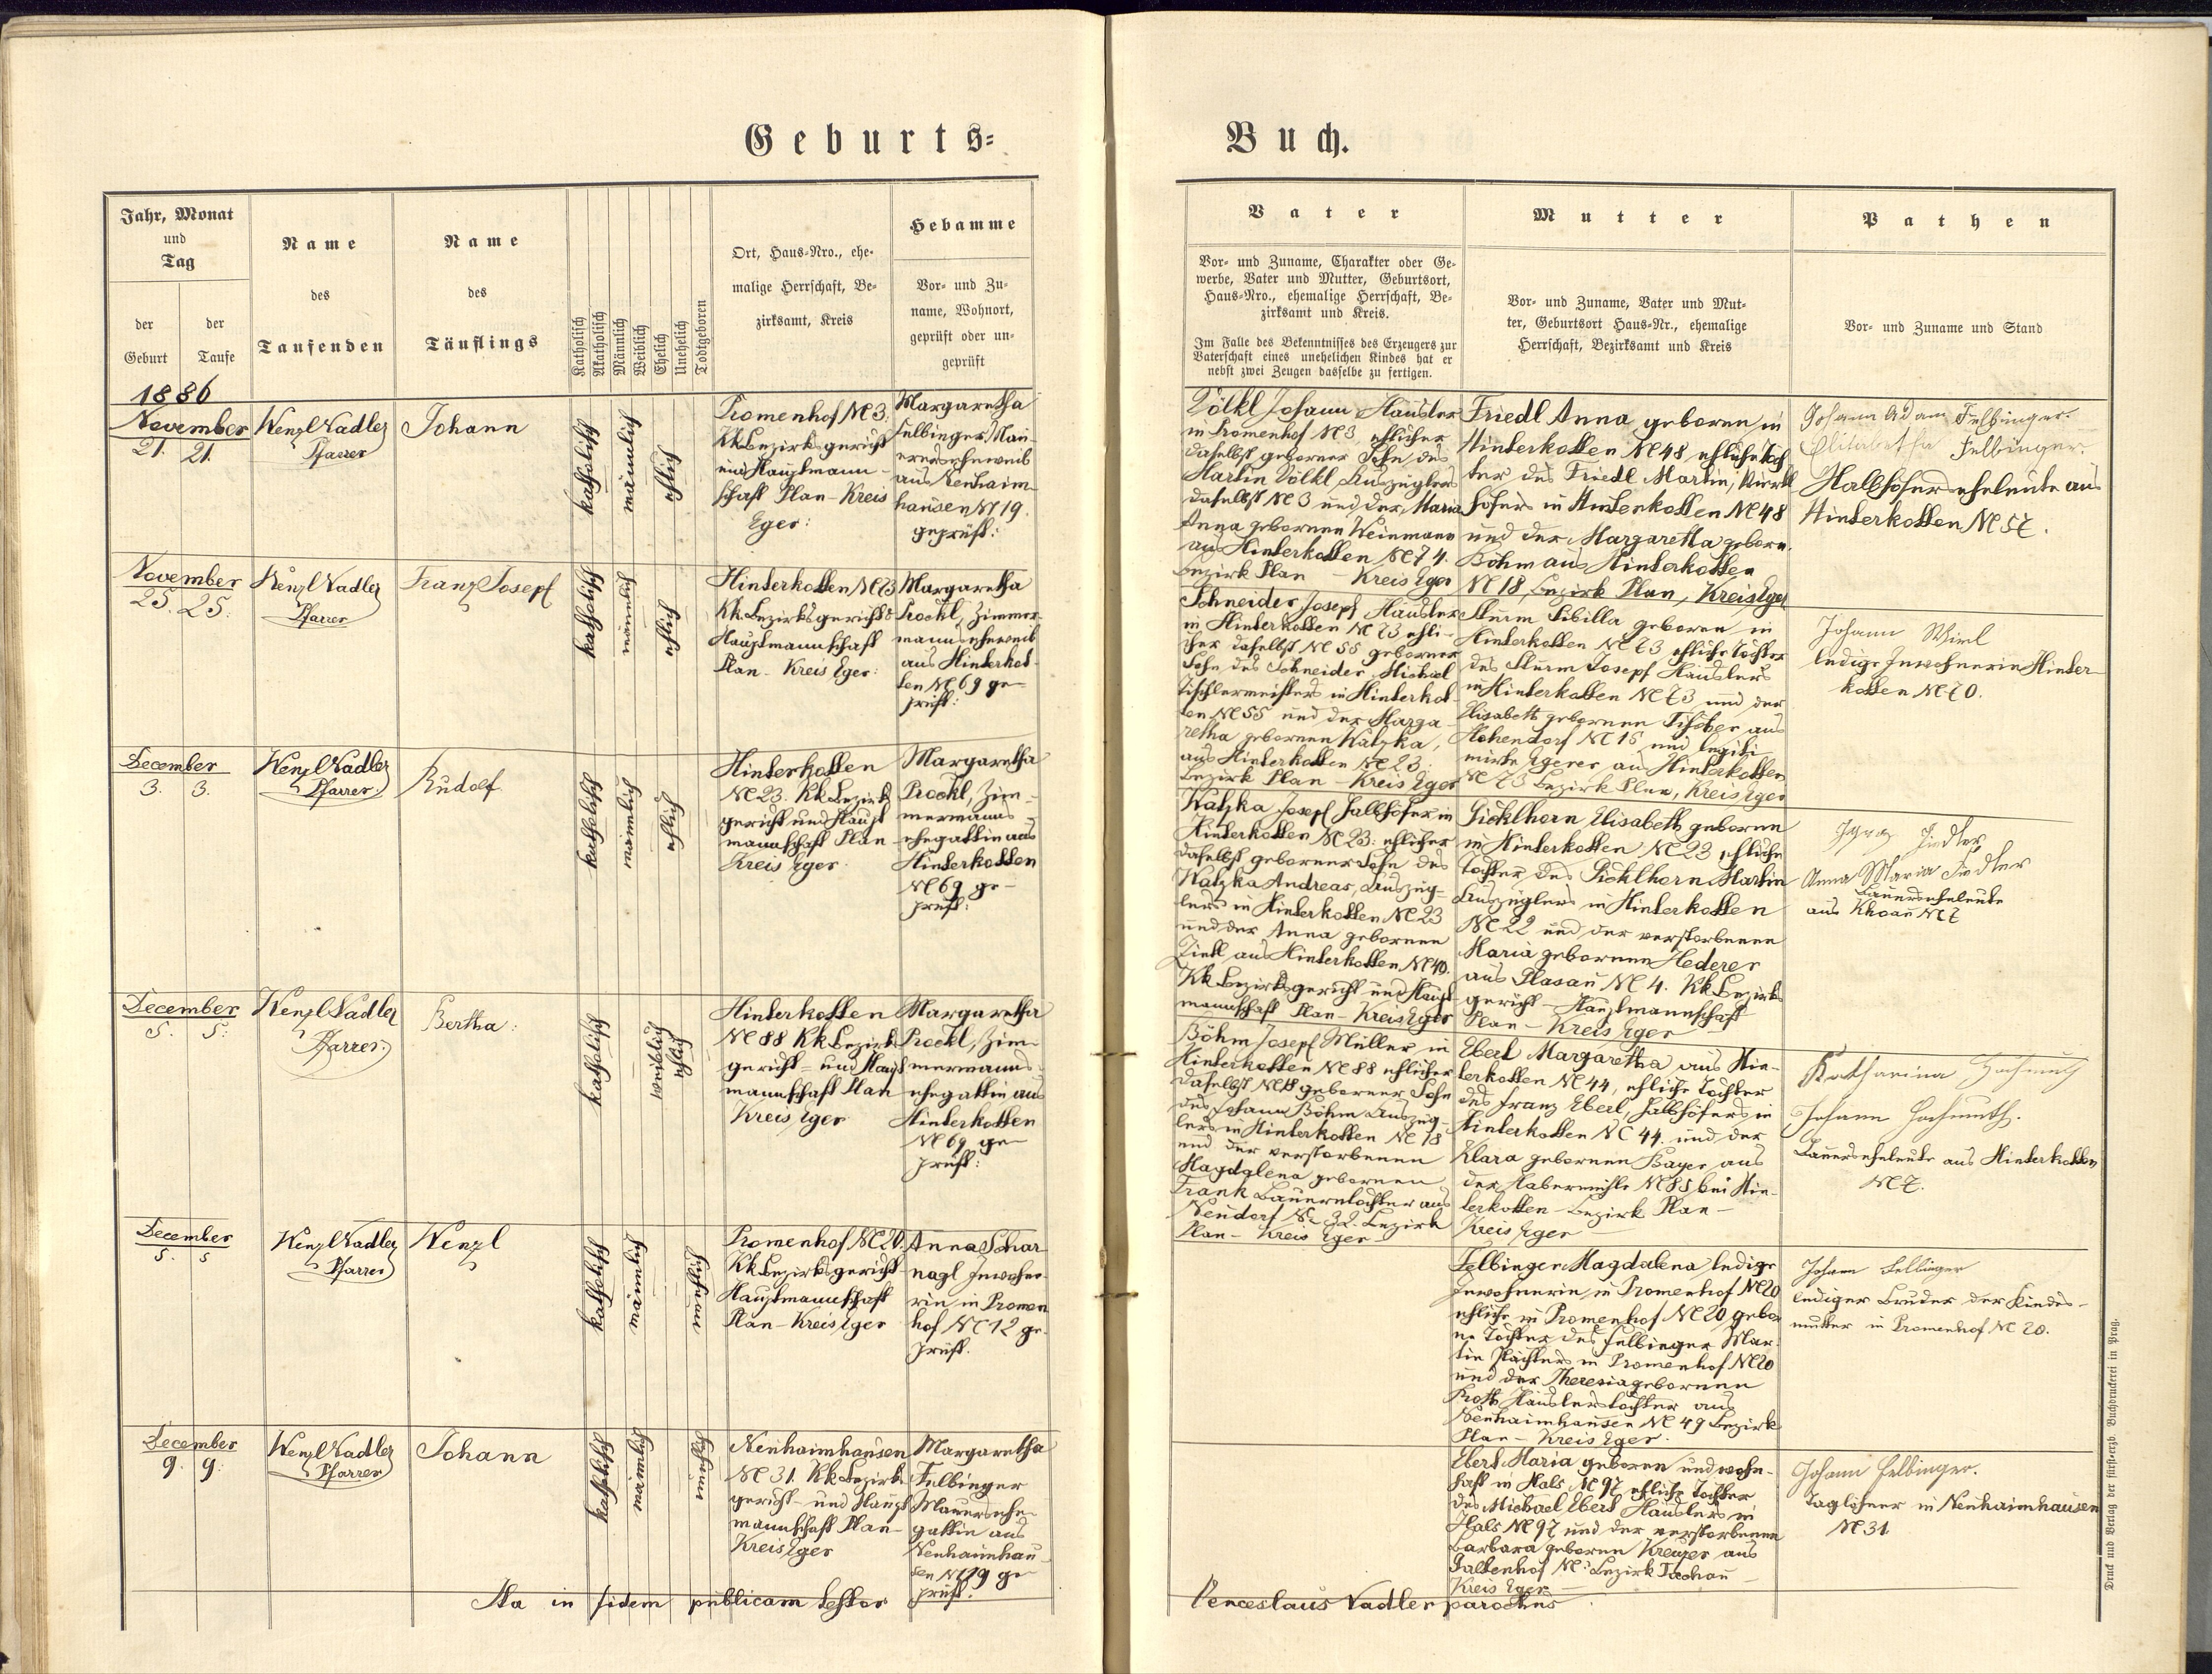 Geburts-
Buch.
Jahr, Monat
und
Tag
der
Geburt
der
Taufe
Name
des
Taufenden
Name
des
Täuflings
Katholisch
Akatholisch
Männlich
Weiblich
Ehelich
Unehelich
Todtgeboren
Ort, Haus-Nro., ehe-
malige Herrschaft, Be-
zirksamt, Kreis
Hebamme
Vor- und Zu-
name, Wohnort,
geprüft oder un-
geprüft
Vater
Vor- und Zuname, Charakter oder Ge-
werbe, Vater und Mutter, Geburtsort,
Haus-Nro., ehemalige Herrschaft, Be-
zirksamt und Kreis.
Im Falle des Bekenntnisses des Erzeugers zur
Vaterschaft eines unehelichen Kindes hat er
nebst zwei Zeugen dasselbe zu fertigen.
Mutter
Vor- und Zuname, Vater und Mut-
ter, Geburtsort Haus-Nr., ehemalige
Herrschaft, Bezirksamt und Kreis
Pathen
Vor- und Zuname und Stand
1886
November
21. 21.
Wenzl Nadler
Pfarrer
Johann
katholisch
männlich
ehlich
Promenhof N 3
KkBezirksgericht
und Hauptmann-
schaft Plan - Kreis
Eger:
Margaretha
Felbinger, Mau-
rerseheweib
aus Neuhaim-
hausen N 19.
geprüft:
Völkl Johann Häusler
in Promenhof N 3, ehlicher
daselbst geborner Sohn des
Martin Völkl Auszüglers
daselbst N 3 und der Maria
Anna gebornen Weinmann
aus Hinterkotten N 74.
Bezirk Plan - Kreis Eger
Friedl Anna geboren in
Hinterkotten N 48 ehliche Toch
ter des Friedl Martin, Viertl
höfers in Hinterkotten N 48
und der Margaretha geborn.
Böhm aus Hinterkotten
N 18, Bezirk Plan, Kreis Eger
Johann Adam Felbinger.
Elisabetha Felbinger.
Halbhöferseheleute aus
Hinterkotten N 57.
November
25. 25.
Wenzl Nadler
Pfarrer
Franz Josepf
katholisch
männlich
ehlich
Hinterkotten N 73
Kk.Bezirksgerichts
Hauptmannschaft
Plan - Kreis Eger:
Margaretha
Prockl, Zimmer-
mannseheweib
aus Hinterkot-
ten N 69 ge-
prüft:
Schneider Josepf Häusler
in Hinterkotten N 73 ehli-
cher daselbst N 55 geborner
Sohn des Schneider Michael
Tischlermeisters in Hinterkot-
ten N 55 und der Marga-
retha gebornen Watzka,
aus Hinterkotten N 23.
Bezirk Plan - Kreis Eger
Sturm Sibilla geboren in
Hinterkotten N 73 ehliche Tochter
des Sturm Josepf Häuslers
in Hinterkotten N 73 und der
Elisabeth gebornen Fischer aus
Hohendorf N 16 und legiti
mirte Egerer an Hinterkotten
N 73 Bezirk Plan, Kreis Eger
Johann
ledige Inwohnerin Hinter-
kotten N 70.
December
3. 3.
Wenzl Nadler
Pfarrer
Rudolf
katholisch
männlich
ehlich
Hinterkotten
N 23. Kk Bezirks
gericht und Haupt
mannschaft Plan -
Kreis Eger
Margaretha
Prockl, Zim-
mermanns
ehegattin aus
Hinterkotten
N 69 ge-
prüft:
Watzka Josepf Halbhöfer in
Hinterkotten N 23. ehlicher
daselbst geborner Sohn des
Watzka Andreas, Auszüg-
lers in Hinterkotten N 23
und der Anna gebornen
Zintl aus Hinterkotten N 40.
Kk Bezirksgericht und Haupt-
mannschaft Plan - Kreis Eger
Picklhorn Elisabeth geboren
in Hinterkotten N 23 ehliche
Tochter des Picklhorn Martin
Auszüglers in Hinterkotten
N 22 und der verstorbenen
Maria gebornen Hederer
aus Plasau N 4. Kk Bezirks
gericht - Hauptmannschaft
Plan - Kreis Eger
Fiedler
Anna Maria Fiedler
Bauerseheleute
aus Khoau N 7
December
5. 5.
Wenzl Nadler
Pfarrer:
Bertha:
katholisch
weiblich
ehlich
Hinterkotten
N 88 Kk Bezirks
gericht - und Haupt
mannschaft Plan
Kreis Eger
Margaretha
Prockl, Zim-
mermanns-
ehegattin aus
Hinterkotten
N 69 ge-
prüft:
Böhm Josepf Müller in
Hinterkotten N 88 ehlicher
daselbst N 18 geborner Sohn
des Johann Böhm Auszüg-
lers in Hinterkotten N 18
und der verstorbenen
Magdalena gebornen
Frank Bauerntochter aus
Neudorf N 32. Bezirk
Plan - Kreis Eger
Eberl Margaretha aus Hin-
terkotten N 44, ehliche Tochter
des Franz Eberl, Halbhöfers in
Hinterkotten N 44. und der
Klara gebornen Bayer aus
der Habermühle N 85 bei Hin-
terkotten - Bezirk Plan -
Kreis Eger
Katharina Hochmuth
Johann Hochmuth.
Bauerseheleute aus Hinterkotten
N 7.
December
5. 5
Wenzl Nadler
Pfarrer
Wenzl
katholisch
männlich
unehlich
Promenhof N 20.
Kk Bezirksgericht -
Hauptmannschaft
Plan - Kreis Eger
Anna Schar
nagl Inwohne-
rin in Promen
hof N 12 ge-
prüft.
Felbinger Magdalena ledige
Inwohnerin in Promenhof N 20
ehliche in Promenhof N 20 gebor
ne Tochter des Felbinger Mar-
tin Pächters in Promenhof N 20
und der Theresia gebornen
Proth Häuslerstochter aus
Neuhaimhausen N 49 Bezirk
Plan - Kreis Eger.
Johann Felbinger
lediger Bruder der Kindes-
mutter in Promenhof N 20.
December
9. 9.
Wenzl Nadler
Pfarrer
Johann
katholisch
männlich
unehlich
Neuhaimhausen
N 31. Kk Bezirks
gericht - und Haupt
mannschaft Plan -
Kreis Eger
Margaretha
Felbinger
Maurersehe-
gattin aus
Neuhaimhau-
sen N 19 ge-
prüft.
Eberl Maria geboren und wohn-
haft in Hals N 97 ehliche Tochter
des Michael Eberl Häuslers in
Hals N 97 und der verstorbenen
Barbara geboren Kreuzer aus
Galtenhof N: Bezirk Tachau -
Kreis Eger -
Johann Felbinger.
Taglöhner in Neuhaimhausen
N 31.
Ita in fidem publicam testor
Venceslaus Nadler parochus
Druck und Verlag der fürsterzb. Buchdruckerei in Prag.